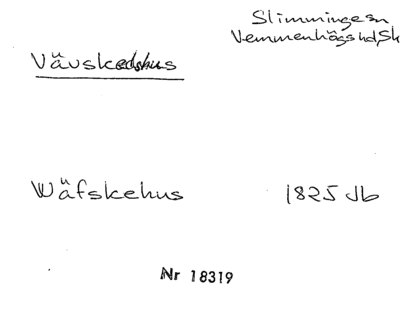 Slimminge sn
Vemmenhögs hd, Sk
Vävskedshus
Wäfskehus 1825 Jb
Nr 18319